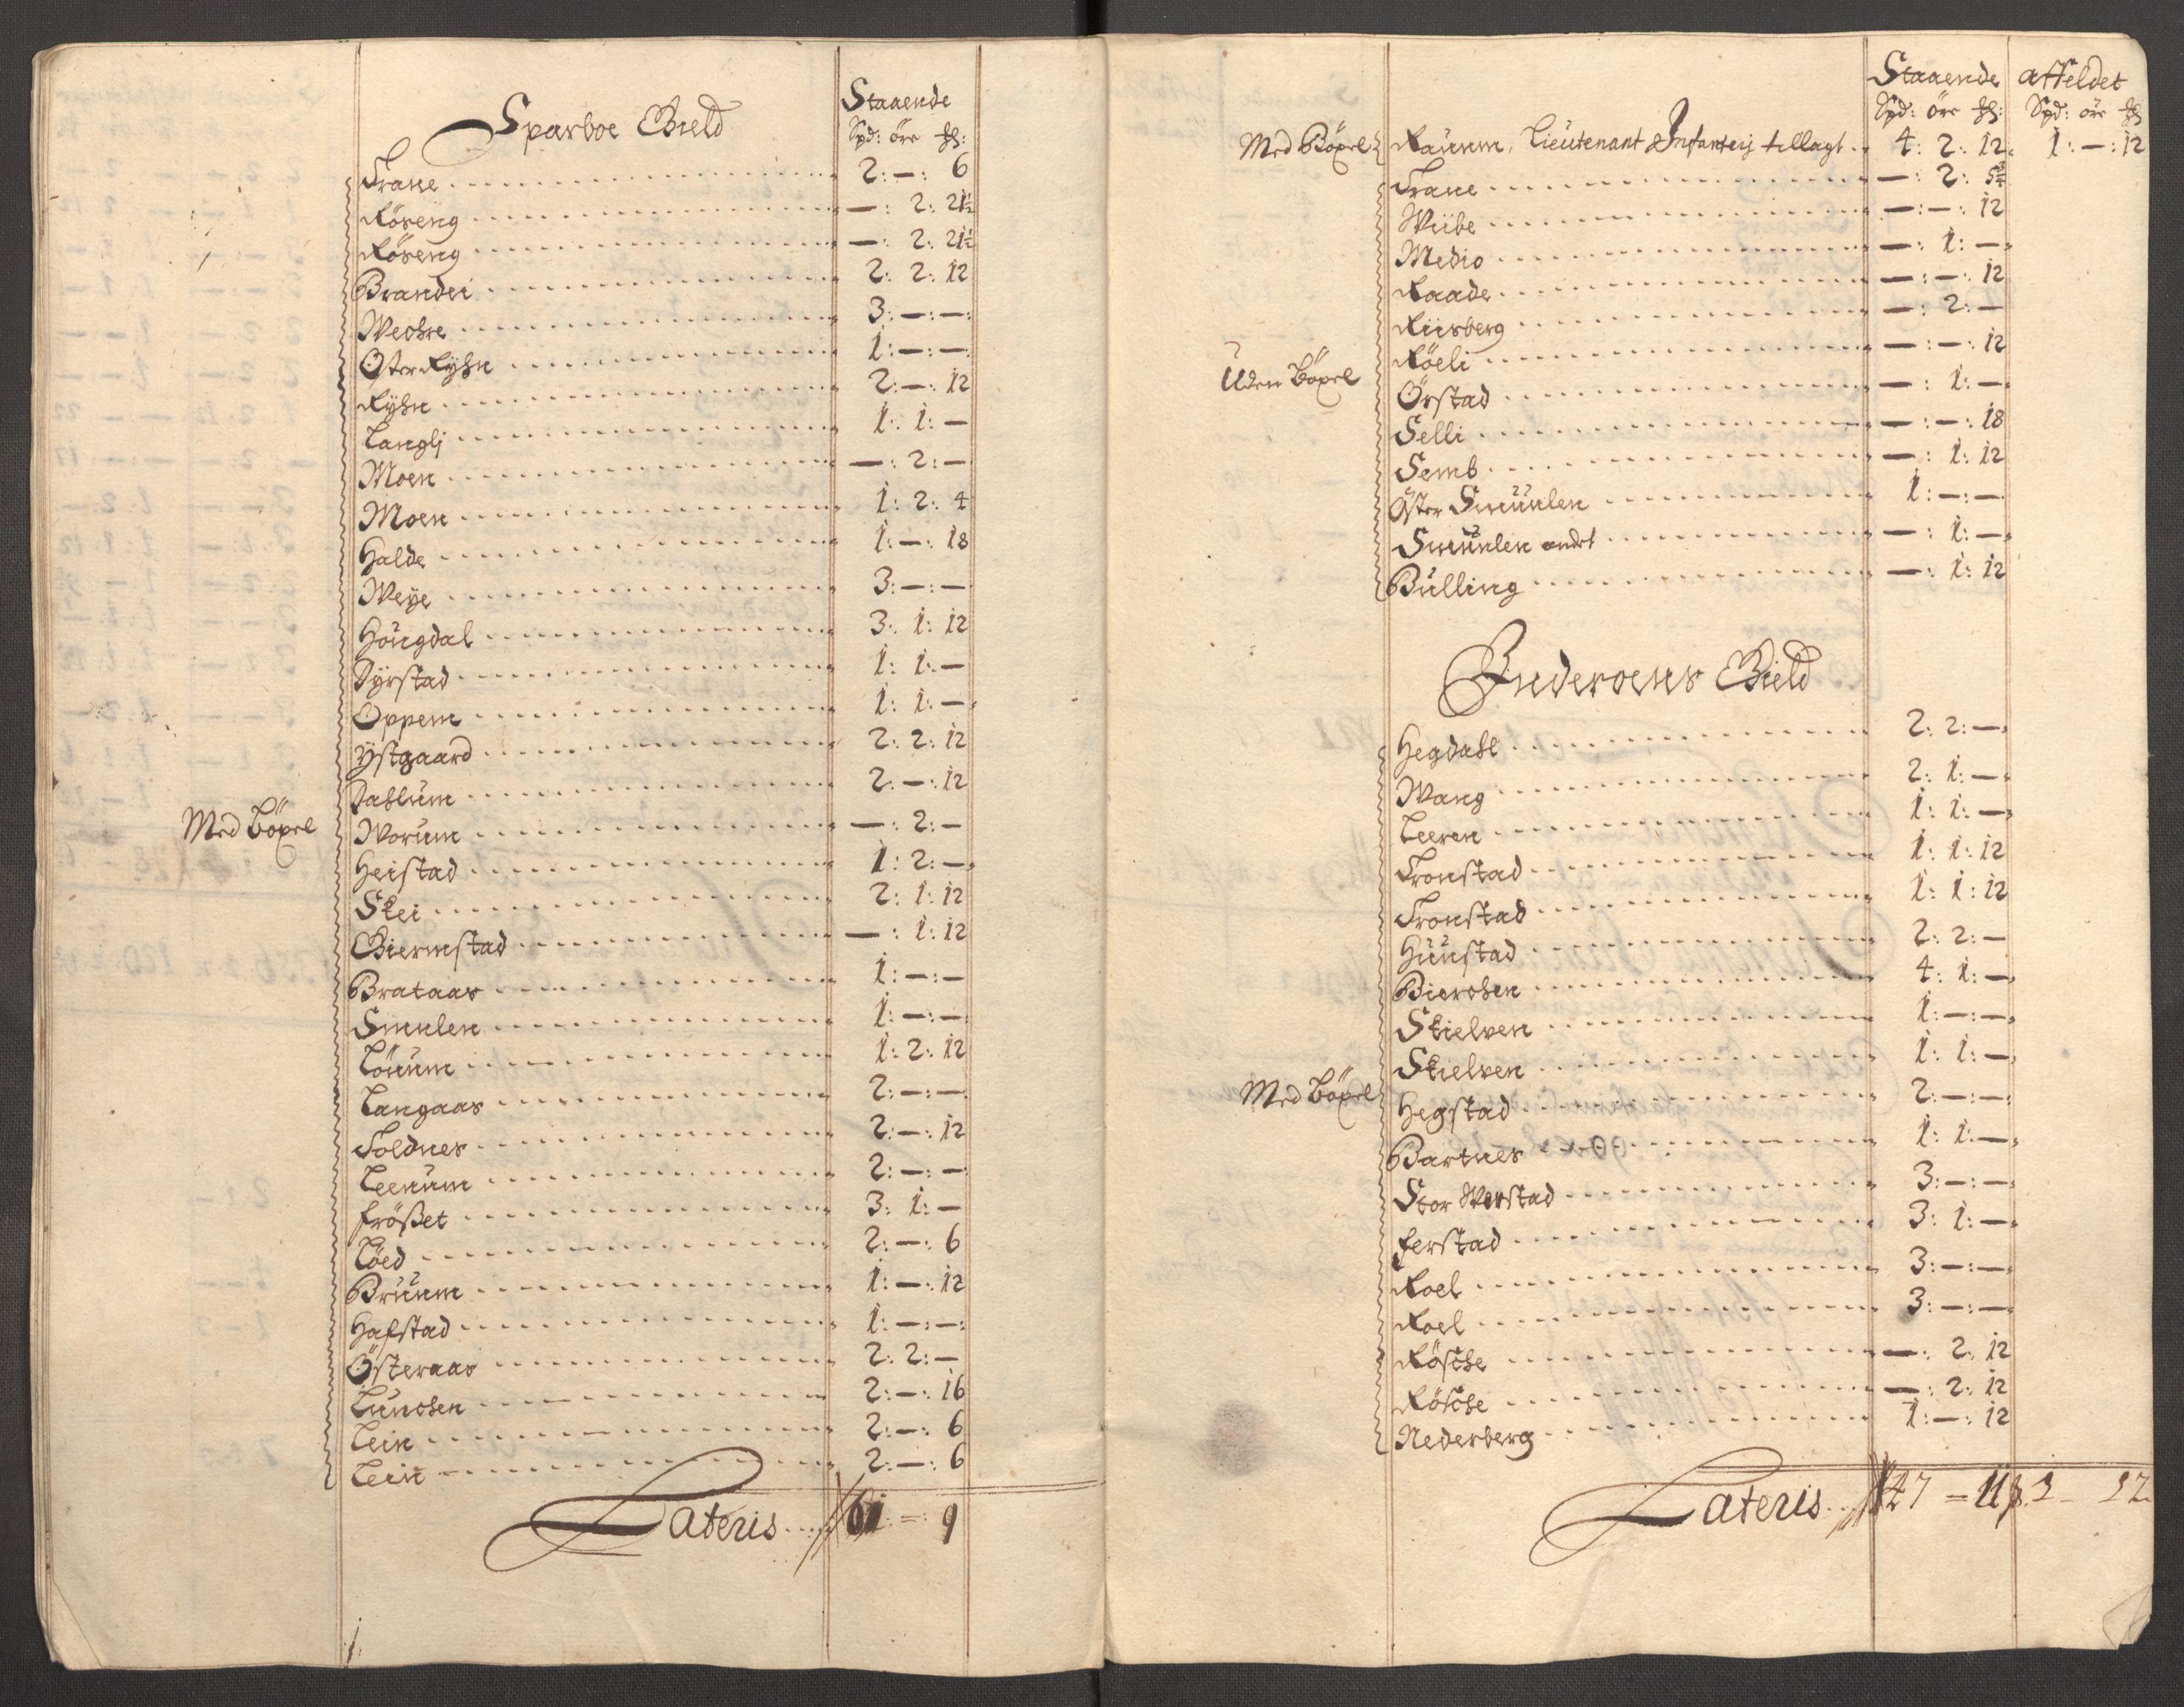 Sparboe Gield
Staaende
Spd: öre
Trane 2: — : 6
Röseng — : 2: 21½
Röseng — : 2: 21½
Brandei 2: 2: 12
Weohre 3: — : —
Öster Ryhn 1: — : —
Ryhn 2: — : 12
Langlj 1: 1: —
Moen — : 2: —
Moen 1: 2: 4
Halde 1: — : 18
Weye 3: — : —
Hougdal 3: 1: 12
Dyrstad 1: 1: —
Oppem 1: 1: —
Ystgaard 2: 2: 12
Dahlum 2: — : 12
Med Böxel
Worum — : 2: —
Heistad 1: 2: —
Skei 2: 1: 12
Giermstad — : 1: 12
Brataas 1: — : —
Smulen 1: — : —
Löuum 1: 2: 12
Langaas 2: — : —
Toldnes 2: — : 12
Leenum 2: — : —
Frößet 3: 1: —
Löed 2: — : 6
Bruum 1: — : 12
Hafstad 1: — : —
Österaas 2: 2: —
Lunohen 2: — : 16
Lein 2: — : 6
Lein 2: — : 6
Lateris 61 = 9
Staaende affeldet
Spd: öre Spd: öre
Med Böxel Rauum, Lieutenant Infanterij tillagt 4: 2: 12 1: — : 12
Trane — : 2: 5
Wiibe — : — : 12
Medio — : 1: —
Raade — : — : 12
Riisberg — : 2: —
Röeli — : — : 12
Uden Böxel
Örstad — : 1: —
Selli — : — : 18
Semb — : 1: 12
Öster Smuulen 1: — : —
Smuulen andet — : 1: —
Bulling — : 1: 12
Inderoens Gield
Hegdahl 2: 2: —
Wang 2: 1: —
Leeren 1: 1: —
Tronstad 1: 1: 12
Tronstad 1: 1: 12
Huustad 2: 2: —
Bierohen 4: 1: —
Skielven 1: — : —
Skielven 1: 1: —
Med Böxel Hegstad 2: — : —
Bartnes 1: 1: —
Stor Werstad 3: — : —
Ferstad 3: 1: —
Roel 3: — : —
Roel 3: — : —
Röskhe — : 2: 12
Röskhe — : 2: 12
Nederberg 1: — : 12
Lateris 47 = 11 1 — 12